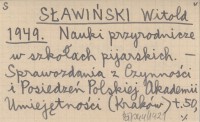 S
SŁAWIŃSKI Witold
1949. Nauki przyrodnicze
w szkołach pijarskich. —
Sprawozdania z Czynności
i Posiedzeń Polskiej Akademii
Umiejętności (Kraków) t.50,